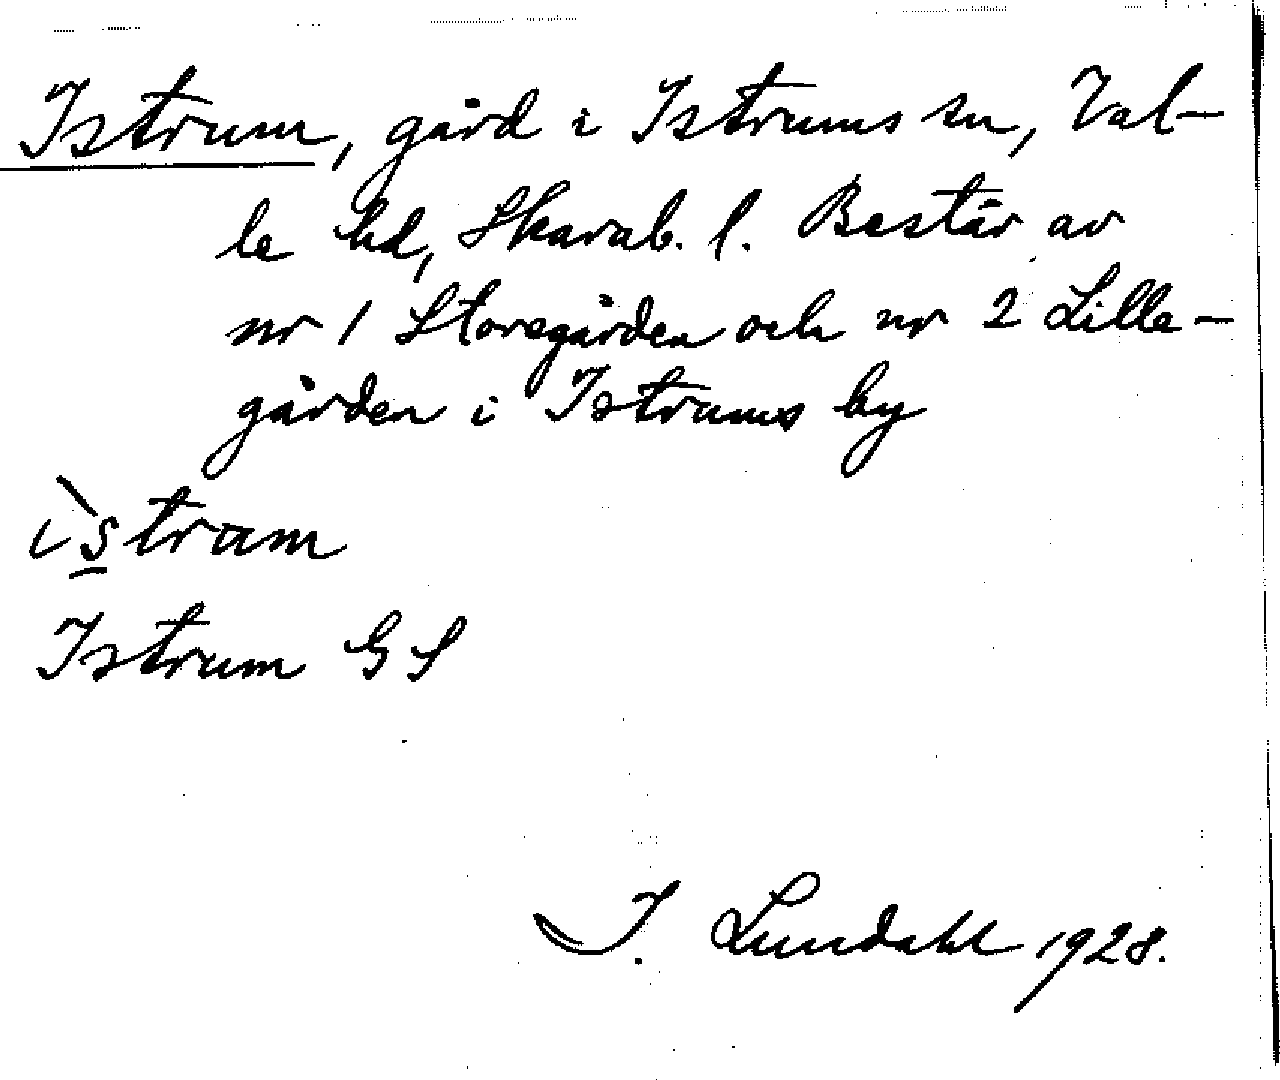 Istrum, gård i Istrums sn, Val-
le hd, Skarab. l. Består av
nr 1 Storegården och nr 2 Lille-
gården i Istrums by
ìstram
Istrum GS
I. Lundahl 1928.